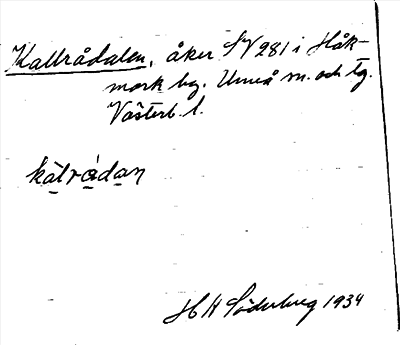 Kallrådalen, åker SV 281 i Håk-
mark by. Umeå sn. och tg.
Västerb. l.
kälrådan
H H Söderberg 1934